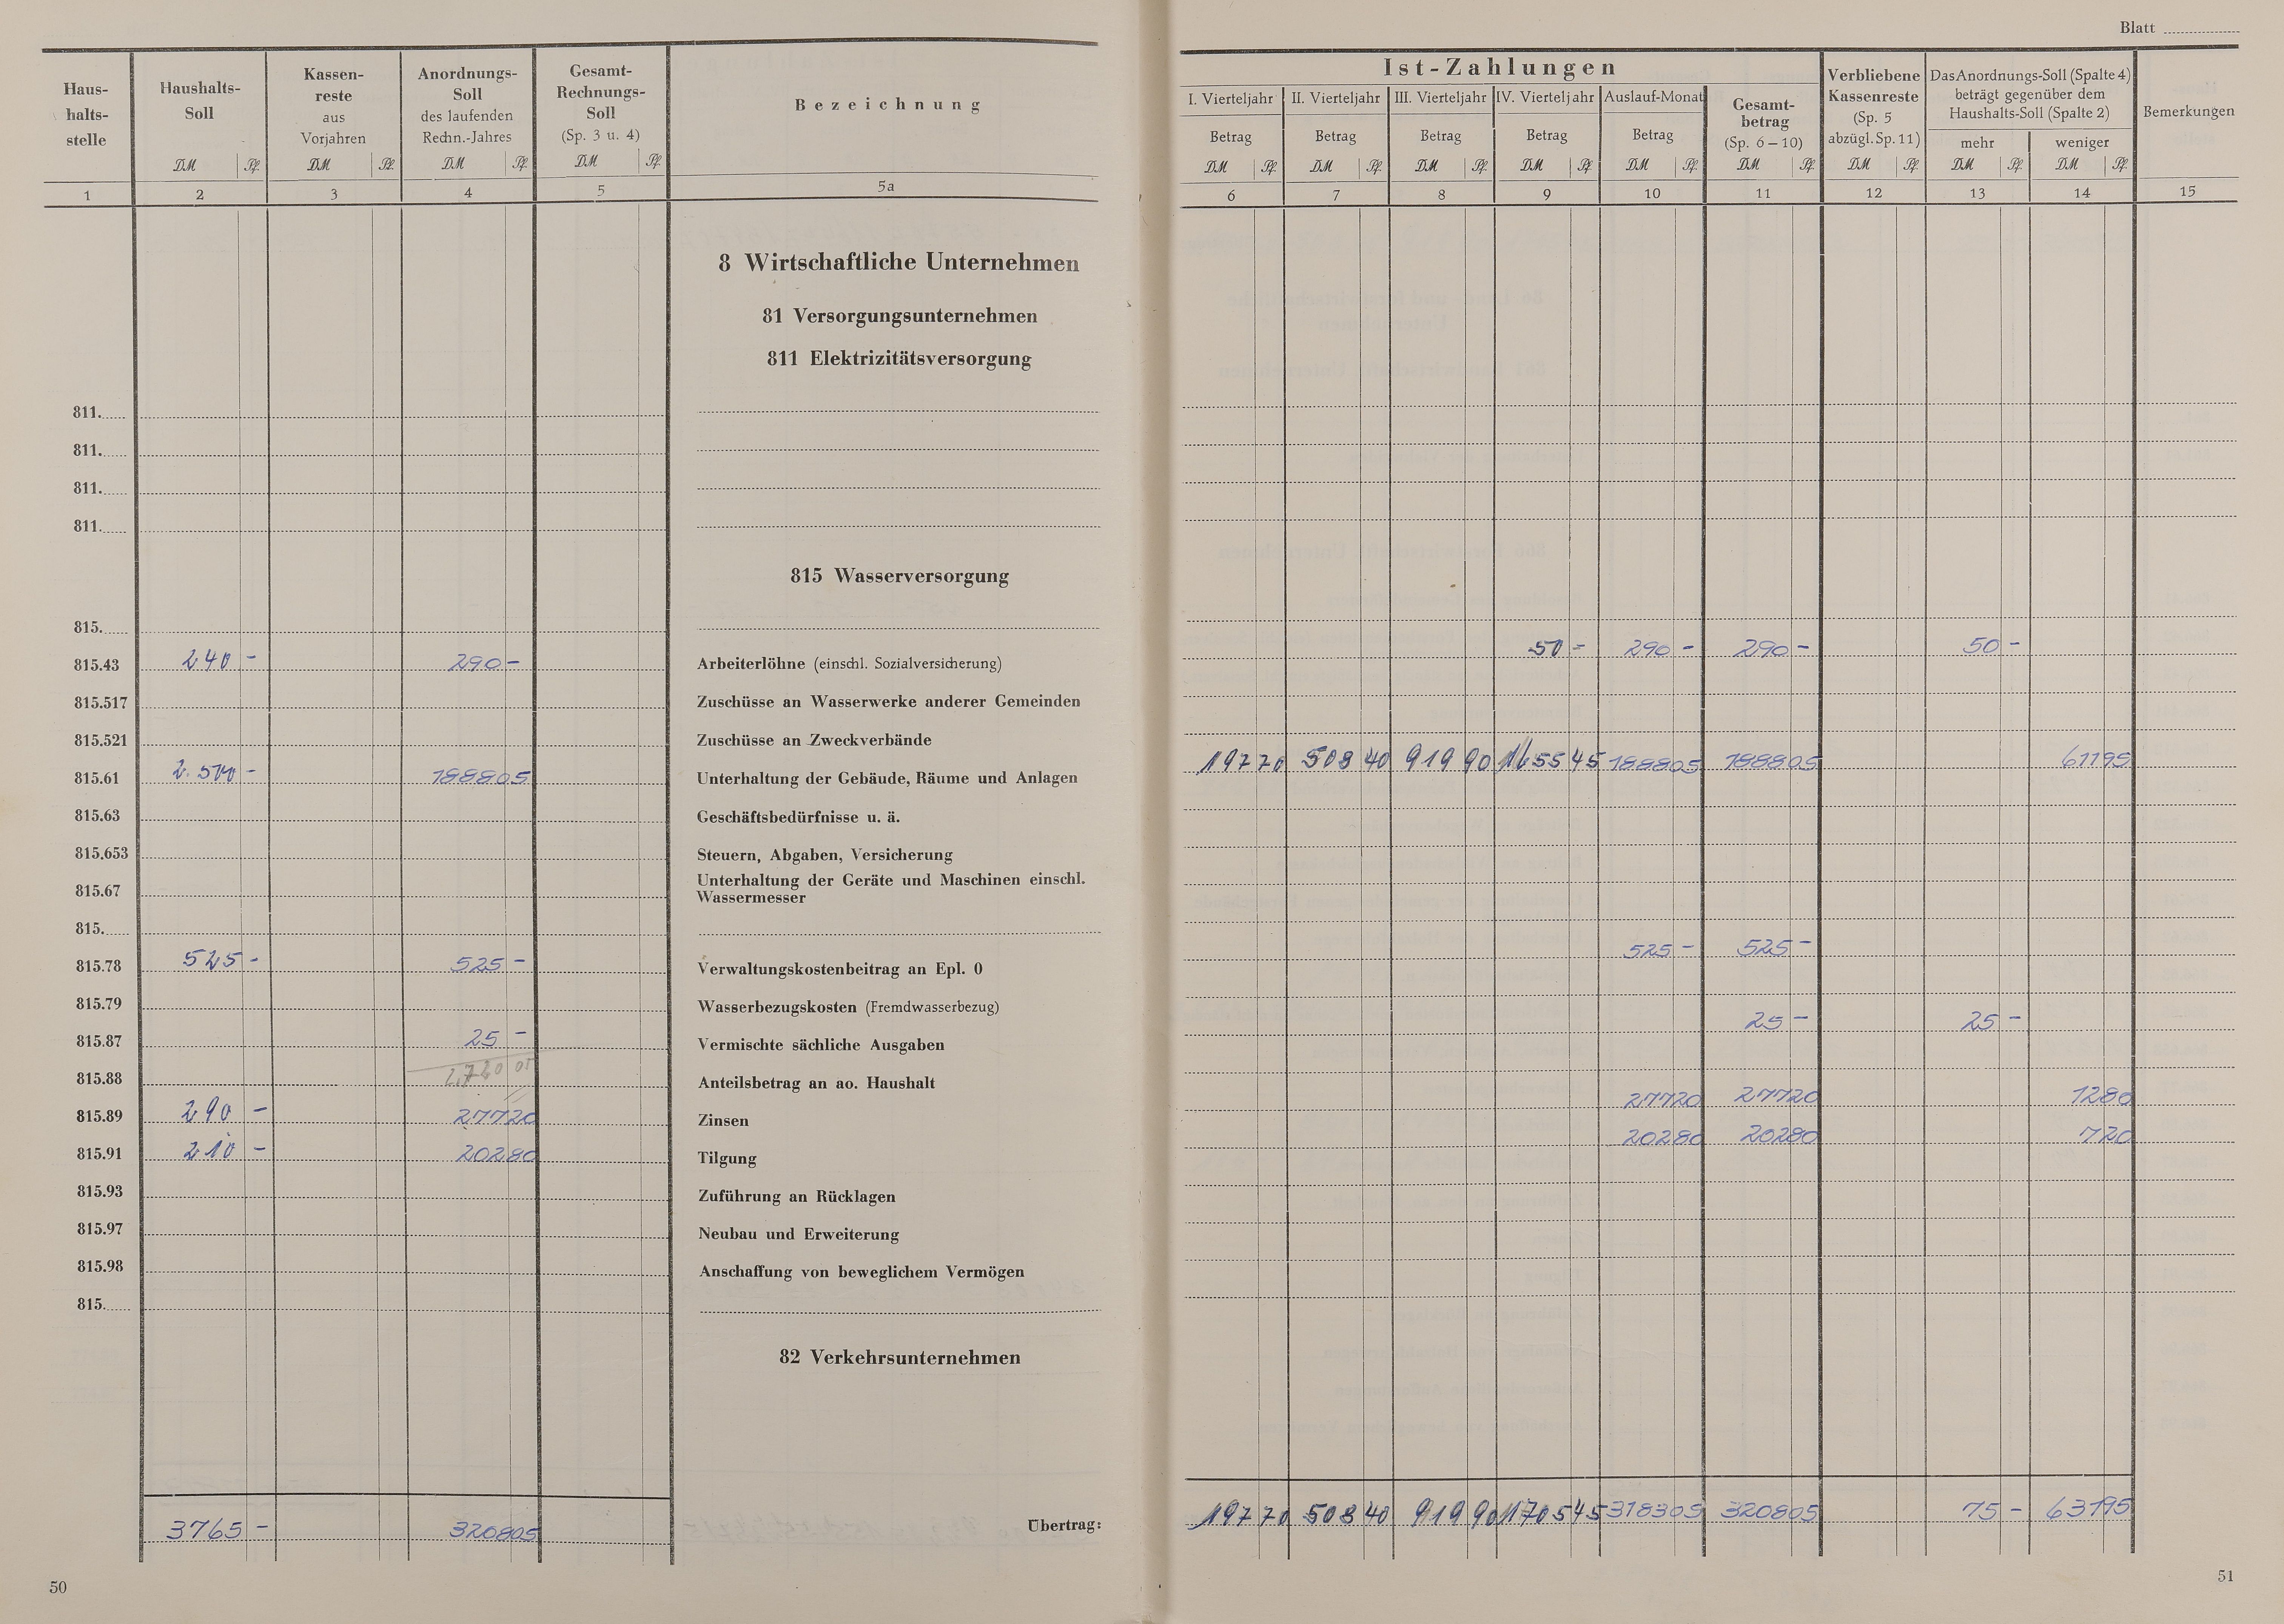 Blatt
Haus-
halts-
stelle
Haushalts-
Soll
DM Pf.
Kassen-
reste
aus
Vorjahren
DM Pf.
Anordnungs-
Soll
des laufenden
Rechn.-Jahres
DM Pf.
Gesamt-
Rechnungs-
Soll
(Sp. 3 u. 4)
DM Pf.
Bezeichnung
Ist-Zahlungen
I. Vierteljahr II. Vierteljahr III. Vierteljahr IV. Vierteljahr Auslauf-Monat
Betrag Betrag Betrag Betrag Betrag
DM Pf. DM Pf. DM Pf. DM Pf. DM Pf.
Gesamt-
betrag
(Sp. 6–10)
DM Pf.
Verbliebene
Kassenreste
(Sp. 5
abzügl. Sp. 11)
DM Pf.
Das Anordnungs-Soll (Spalte 4)
beträgt gegenüber dem
Haushalts-Soll (Spalte 2)
mehr weniger
DM Pf. DM Pf.
Bemerkungen
1 2 3 4 5 5a 6 7 8 9 10 11 12 13 14 15
8 Wirtschaftliche Unternehmen
81 Versorgungsunternehmen
811 Elektrizitätsversorgung
811.
811.
811.
811.
815 Wasserversorgung
815.
815.43 240 – 290 – Arbeiterlöhne (einschl. Sozialversicherung) 50 – 290 – 290 – 50 –
815.517 Zuschüsse an Wasserwerke anderer Gemeinden
815.521 Zuschüsse an Zweckverbände
815.61 2.500 – 1888 05 Unterhaltung der Gebäude, Räume und Anlagen 197 70 508 40 919 90 1655 45 1888 05 1888 05 611 95
815.63 Geschäftsbedürfnisse u. ä.
815.653 Steuern, Abgaben, Versicherung
815.67 Unterhaltung der Geräte und Maschinen einschl.
Wassermesser
815.
815.78 525 – 525 – Verwaltungskostenbeitrag an Epl. 0 525 – 525 –
815.79 Wasserbezugskosten (Fremdwasserbezug)
815.87 25 – Vermischte sächliche Ausgaben 25 – 25 –
815.88 Anteilsbetrag an ao. Haushalt
815.89 290 – 277 20 Zinsen 277 20 277 20 12 80
815.91 210 – 202 80 Tilgung 202 80 202 80 7 20
815.93 Zuführung an Rücklagen
815.97 Neubau und Erweiterung
815.98 Anschaffung von beweglichem Vermögen
815.
82 Verkehrsunternehmen
3765 – 3208 05 Übertrag: 197 70 508 40 919 90 1705 45 3183 05 3208 05 75 – 631 95
50
51